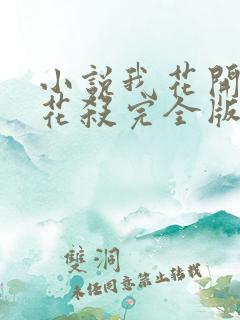 小說我花開
花殺完全版
雙洞
未任同意禁止转载